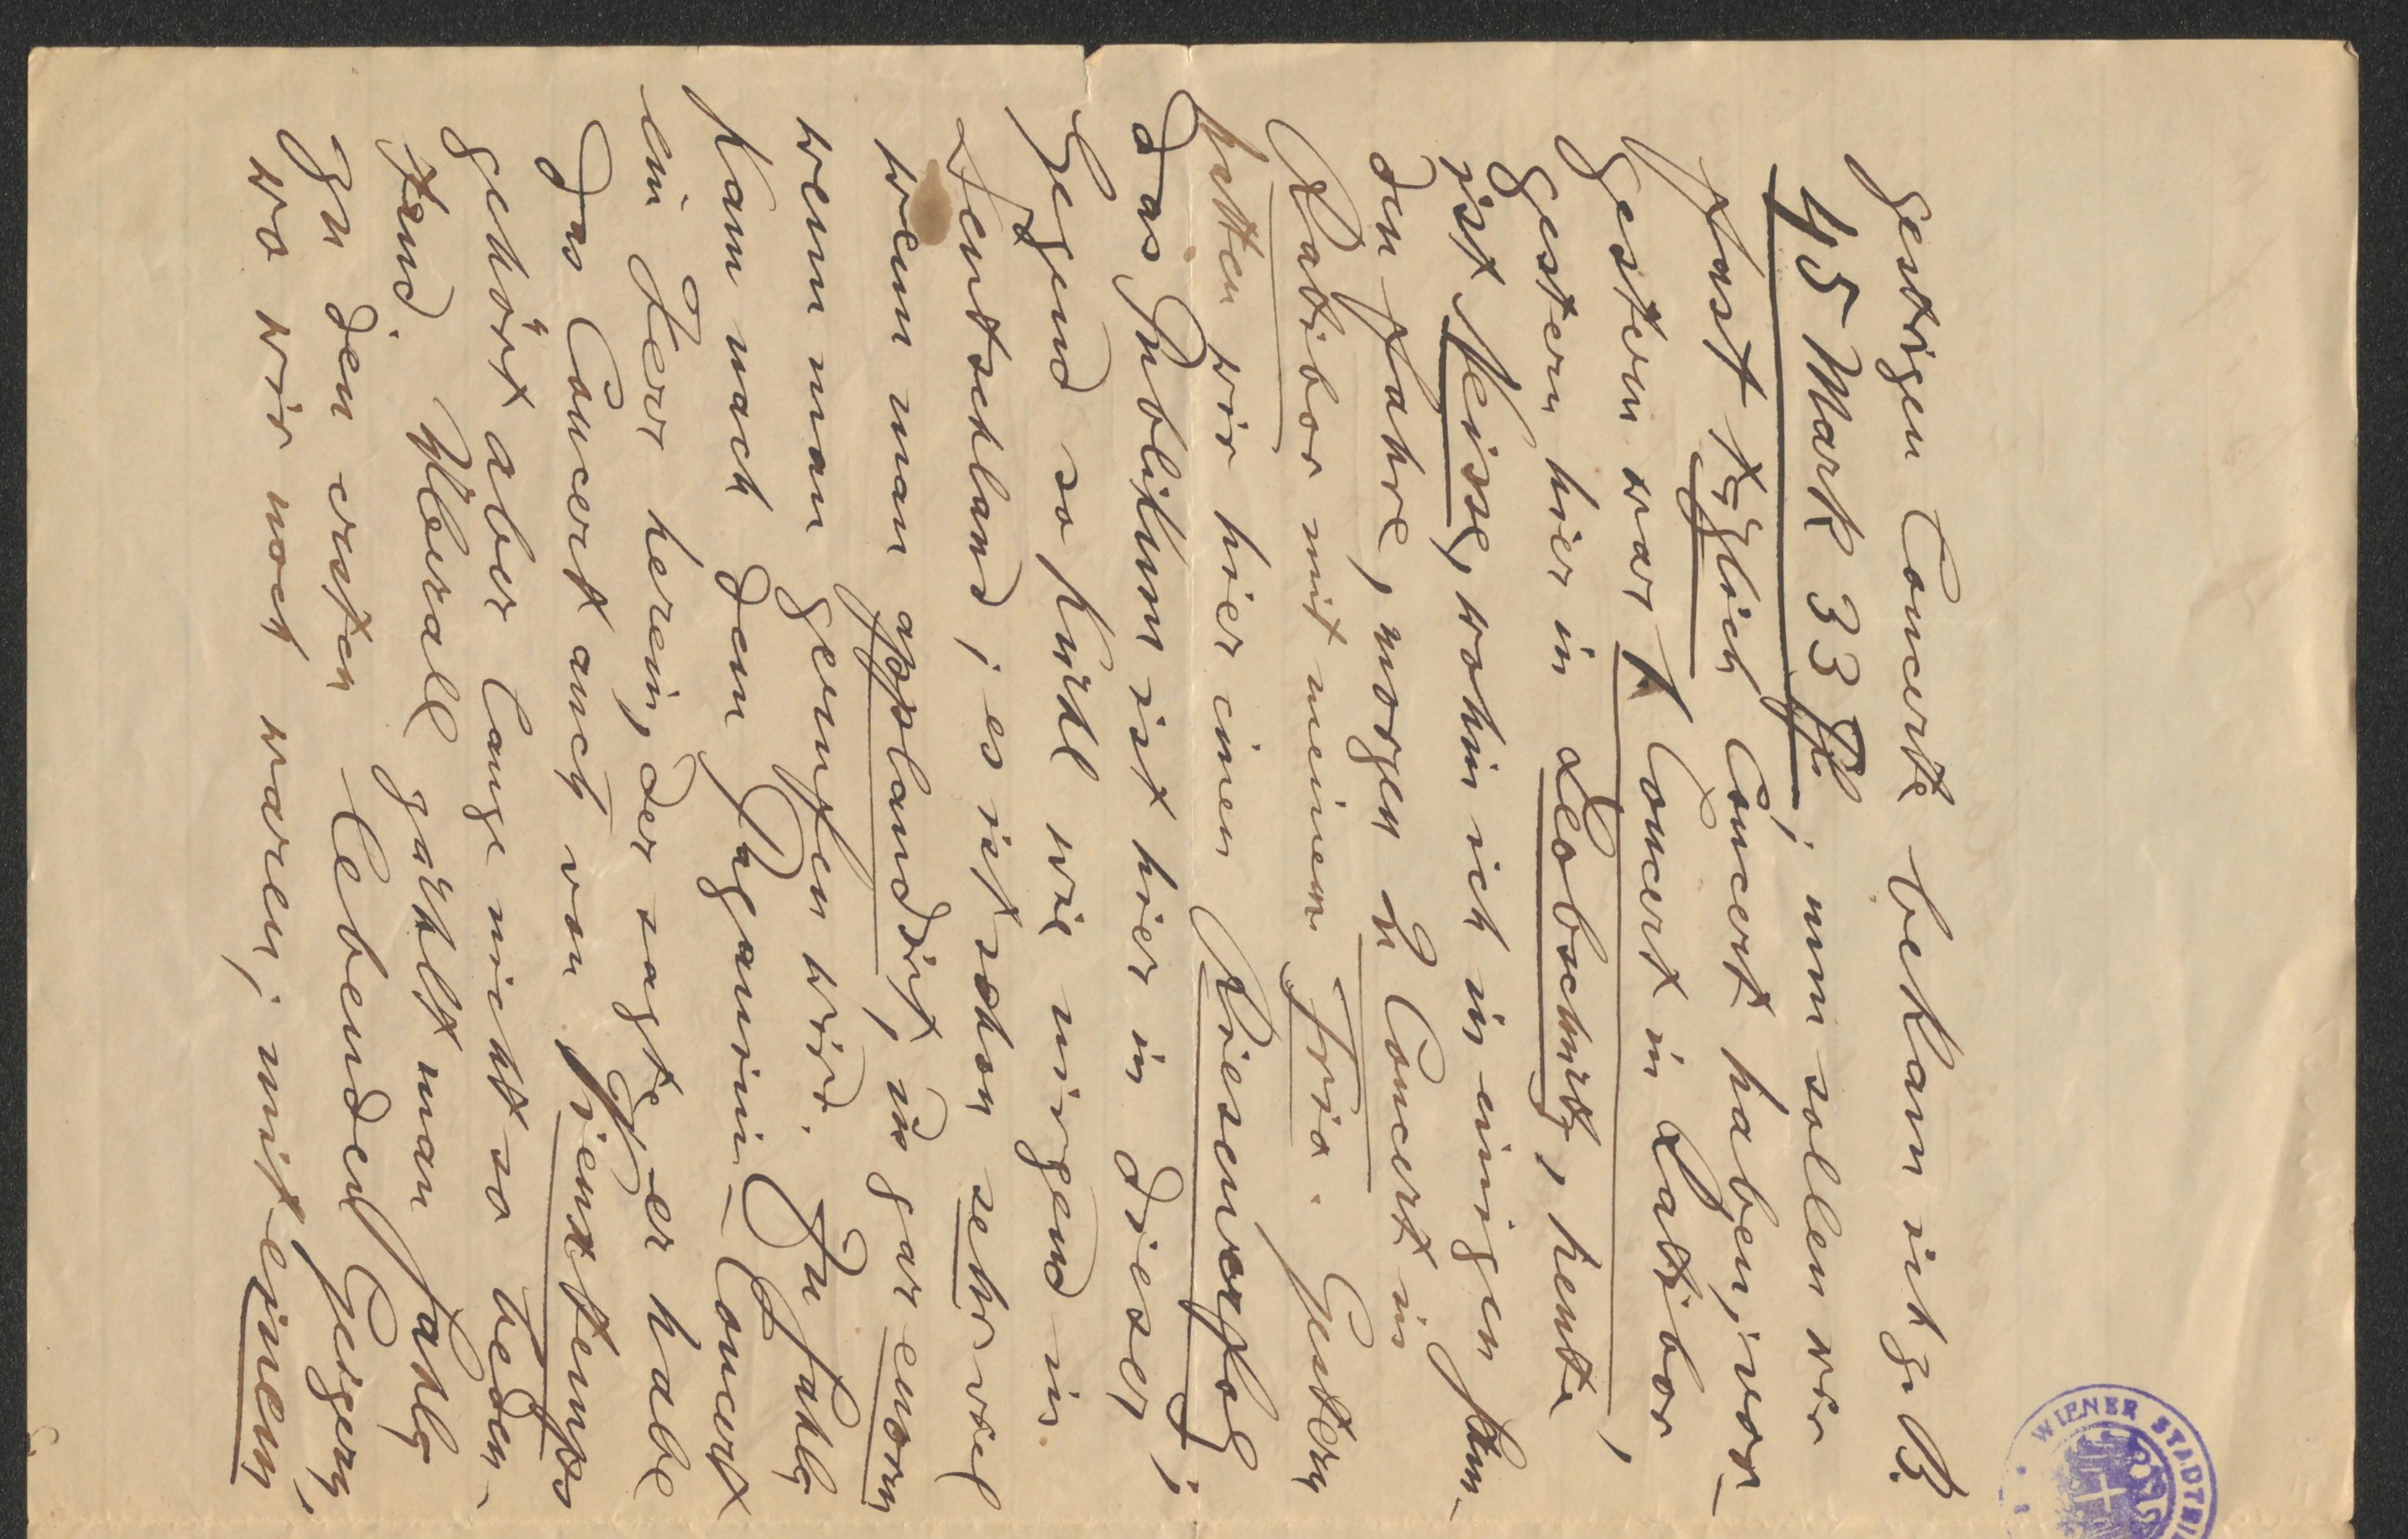 gestrigen Concerte bekam ich z. B.
45 Mark 33 Pf.; nun sollen wir
fast täglich Concert haben; vor-
gestern war 1. Concert in Ratibor,
gestern hier in Leobschütz, heute
ist Neisse, wohin ich in einigen Stun-
den fahre, morgen 2. Concert in
Ratibor mit meinem Trio. Gestern
hatten wir hier einen Riesenerfolg
das Publikum ist hier in dieser
Gegend so kühl wie nirgend in
Deutschland; es ist schon sehr viel
wenn man applaudirt, u. gar enorm
wenn man gerufen wird. In Fahlg
kam nach dem Paganini-Concert
ein Herr herein, der sagte er habe
das Concert auch von Vieuxtemps
gehört aber lange nicht so bedeu-
tend. Ueberall zählt man Fahlg
zu den ersten lebenden Geigern,
wo wir noch waren; mit einem
WIENER STADT